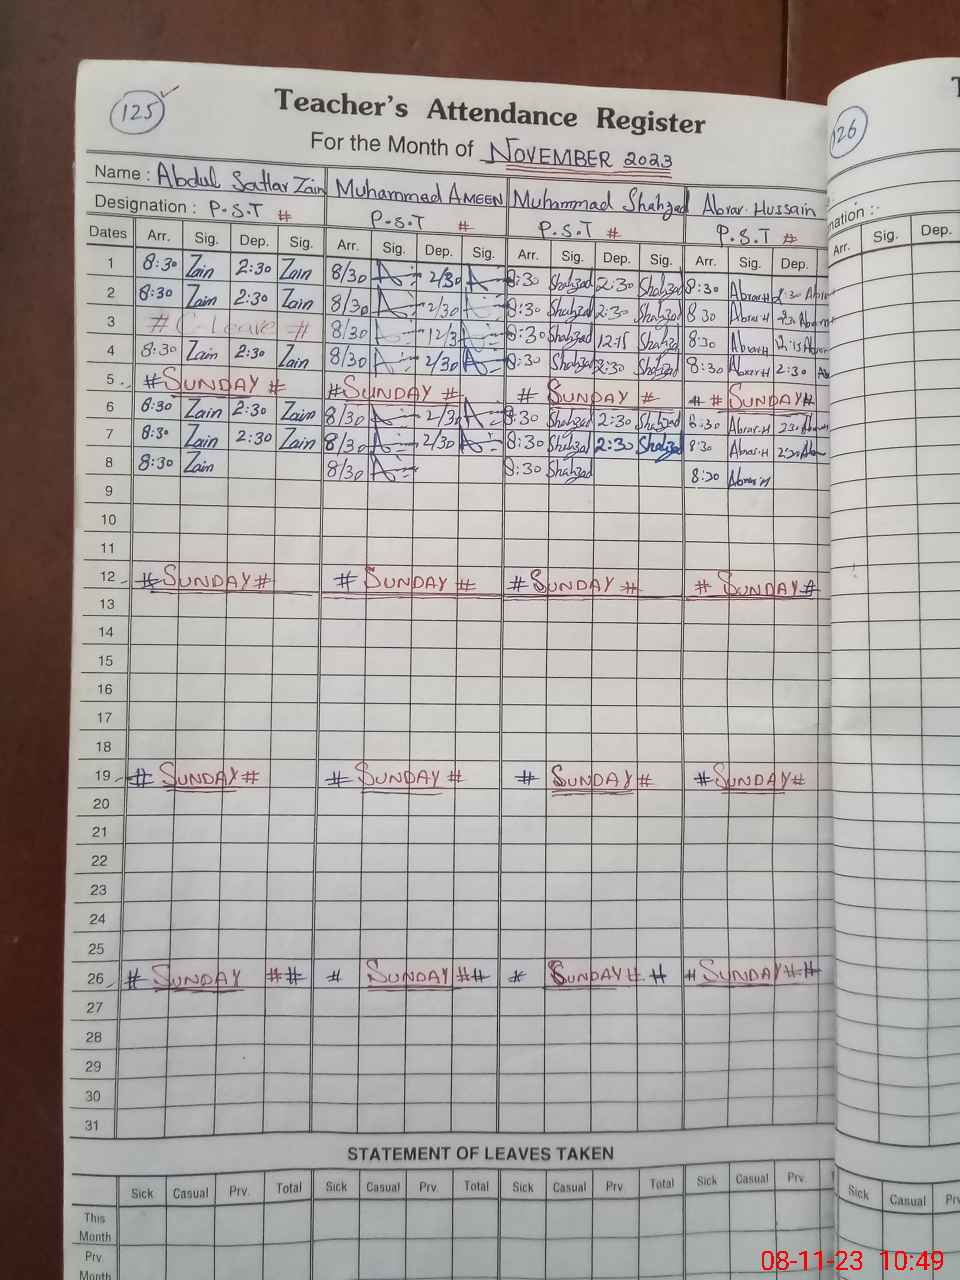 125
Teacher's Attendance Register
For the Month of NOVEMBER 2023
Name : Abdul Sattar Zain Muhammad AMEEN Muhammad Shahzad Abrar Hussain
Designation : P.S.T # P.S.T # P.S.T # P.S.T #
Dates Arr. Sig. Dep. Sig. Arr. Sig. Dep. Sig. Arr. Sig. Dep. Sig. Arr. Sig. Dep.
1 8:30 Zain 2:30 Zain 8/30 2/30 8:30 Shahzad 2:30 Shahzad 8:30 Abrar.H 2:30 Abrar
2 8:30 Zain 2:30 Zain 8/30 2/30 8:30 Shahzad 2:30 Shahzad 8:30 Abrar.H
3 # C-Leave # 8/30 8:30 Shahzad 12:15 Shahzad 8:30 Abrar.H 12:15
4 8:30 Zain 2:30 Zain 8/30 2/30 8:30 Shahzad 2:30 Shahzad 8:30 Abrar.H 2:30
5 # SUNDAY # # SUNDAY # # SUNDAY # # # SUNDAY #
6 8:30 Zain 2:30 Zain 8/30 2/30 8:30 Shahzad 2:30 Shahzad 8:30 Abrar.H
7 8:30 Zain 2:30 Zain 8/30 2/30 8:30 Shahzad 2:30 Shahzad 8:30 Abrar.H 2:30
8 8:30 Zain 8/30 8:30 Shahzad 8:30 Abrar.H
9
10
11
12 # SUNDAY # # SUNDAY # # SUNDAY # # SUNDAY #
13
14
15
16
17
18
19 # SUNDAY # # SUNDAY # # SUNDAY # # SUNDAY #
20
21
22
23
24
25
26 # SUNDAY ## # SUNDAY ## # SUNDAY # # # SUNDAY ##
27
28
29
30
31
STATEMENT OF LEAVES TAKEN
Sick Casual Prv. Total Sick Casual Prv. Total Sick Casual Prv. Total Sick Casual Prv.
This
Month
Prv
Month
126
nation :-
Arr. Sig. Dep.
Sick Casual
08-11-23 10:49